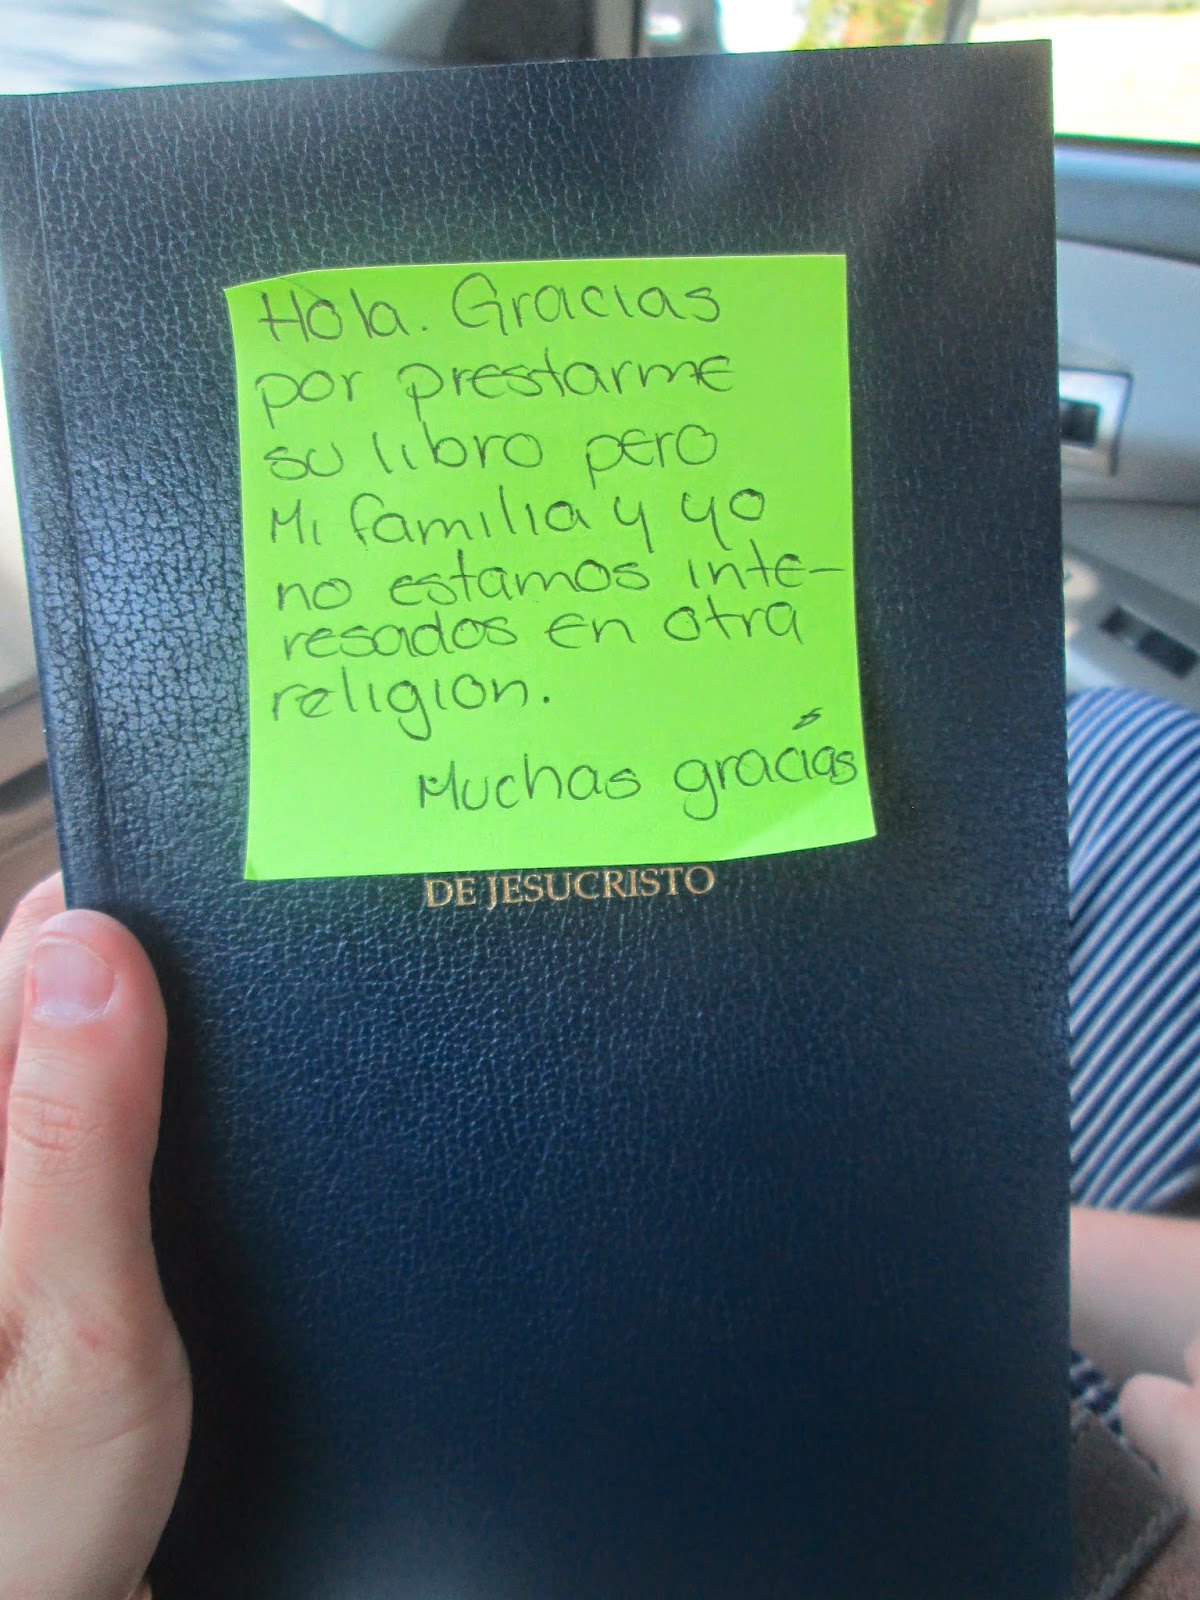 Hola. Gracias
por prestarme
su libro pero
Mi familia y yo
no estamos inte-
resados en otra
religion.
Muchas gracias
DE JESUCRISTO